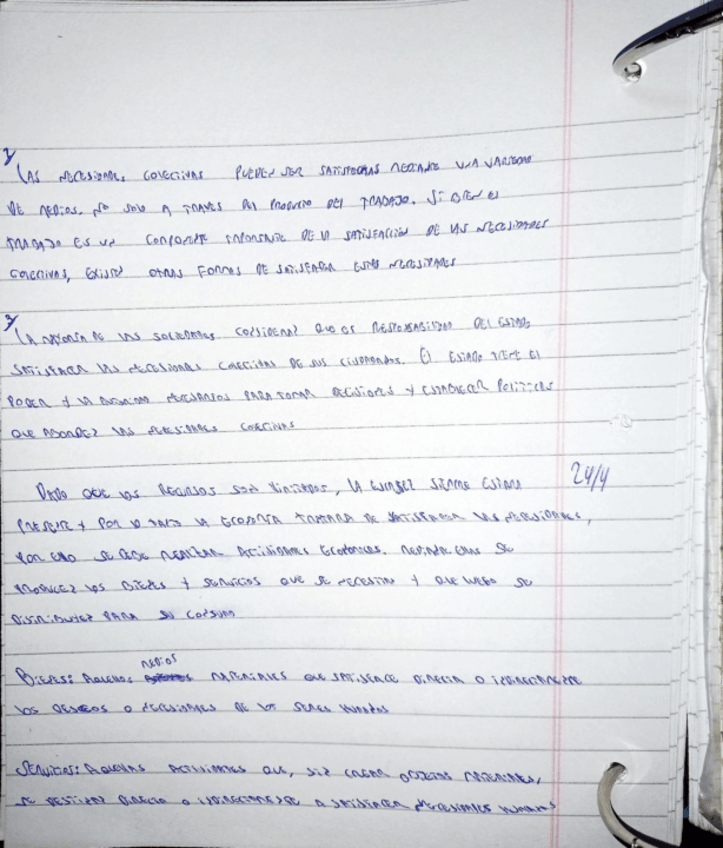 2/
LAS NECESIDADES COLECTIVAS PUEDEN SER SATISFECHAS MEDIANTE UNA VARIEDAD
DE MEDIOS, NO SOLO A TRAVES DEL PRODUCTO DEL TRABAJO. SI BIEN EL
TRABAJO ES UN COMPONENTE IMPORTANTE DE LA SATISFACCIÓN DE LAS NECESIDADES
COLECTIVAS, EXISTEN OTRAS FORMAS DE SATISFACER ESTAS NECESIDADES
3/
LA MAYORIA DE LAS SOCIEDADES CONSIDERAN QUE ES RESPONSABILIDAD DEL ESTADO
SATISFACER LAS NECESIDADES COLECTIVAS DE SUS CIUDADANOS. EL ESTADO TIENE EL
PODER Y LA AUTORIDAD NECESARIOS PARA TOMAR DECISIONES Y ESTABLECER POLITICAS
QUE ABORDEN LAS NECESIDADES COLECTIVAS
24/4
DADO QUE LOS RECURSOS SON LIMITADOS, LA ESCASEZ SIEMPRE ESTARA
PRESENTE Y POR LO TANTO LA ECONOMIA TRATARA DE SATISFACER LAS NECESIDADES,
POR ELLO SE DEBE REALIZAR ACTIVIDADES ECONOMICAS. MEDIANTE ELLAS SE
PRODUCEN LOS BIENES Y SERVICIOS QUE SE NECESITAN Y QUE LUEGO SE
DISTRIBUYEN PARA SU CONSUMO
MEDIOS
BIENES: AQUELLOS MATERIALES QUE SATISFACE DIRECTA O INDIRECTAMENTE
LOS DESEOS O NECESIDADES DE LOS SERES HUMANOS
SERVICIOS: AQUELLAS ACTIVIDADES QUE, SIN CREAR OBJETOS MATERIALES,
SE DESTINAN DIRECTA O INDIRECTAMENTE A SATISFACER NECESIDADES HUMANAS